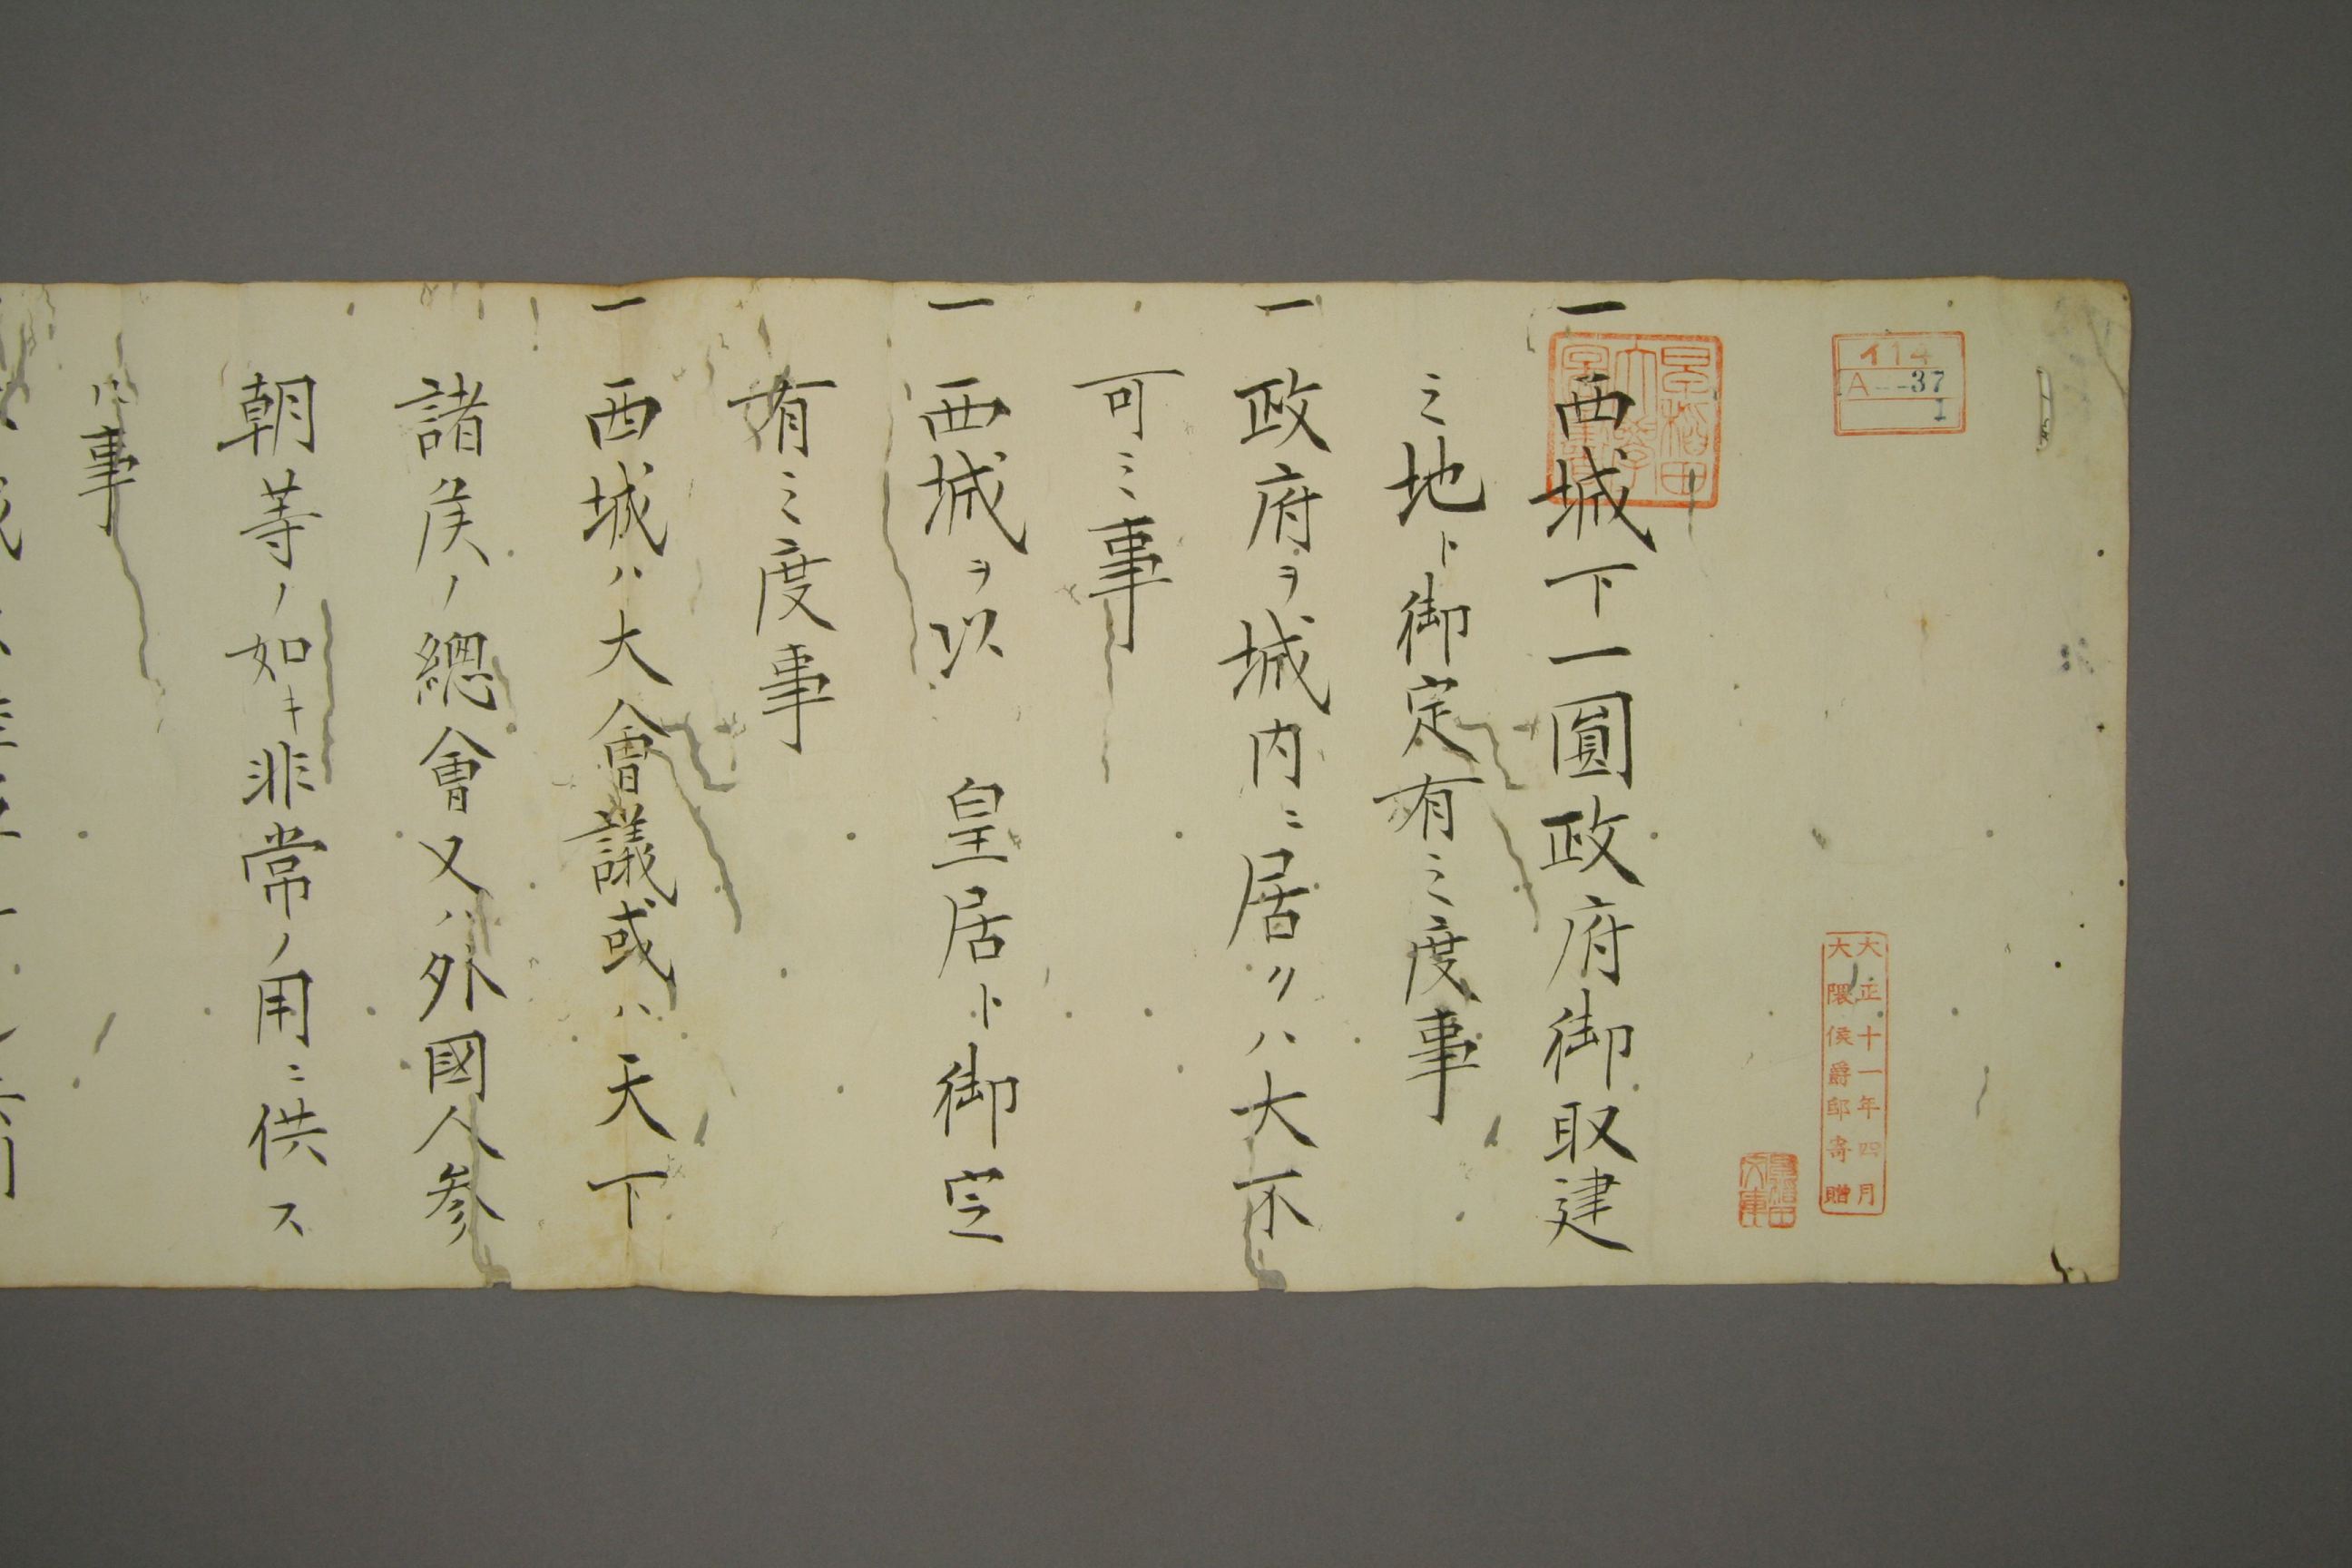 イ14
A 37
1
大正十一年四月
大隈侯爵邸寄贈
早稲田
文庫
早稲田
大學
圖書
一 西城下一圓政府御取建
之地ト御定有之度事
一 政府ヲ城内ニ居リハ大不
可之事
一 西城ヲ以 皇居ト御定
有之度事
一 西城ハ大會議或ハ天下
諸侯ノ總會又ハ外國人参
朝等ノ如キ非常ノ用ニ供ス
ル事